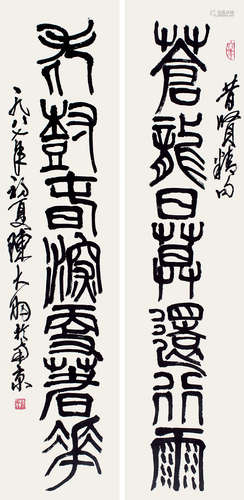 昔賢精句
蒼龍日莫還行雨
老樹春深更著華
一九八年初夏陳大羽於南京